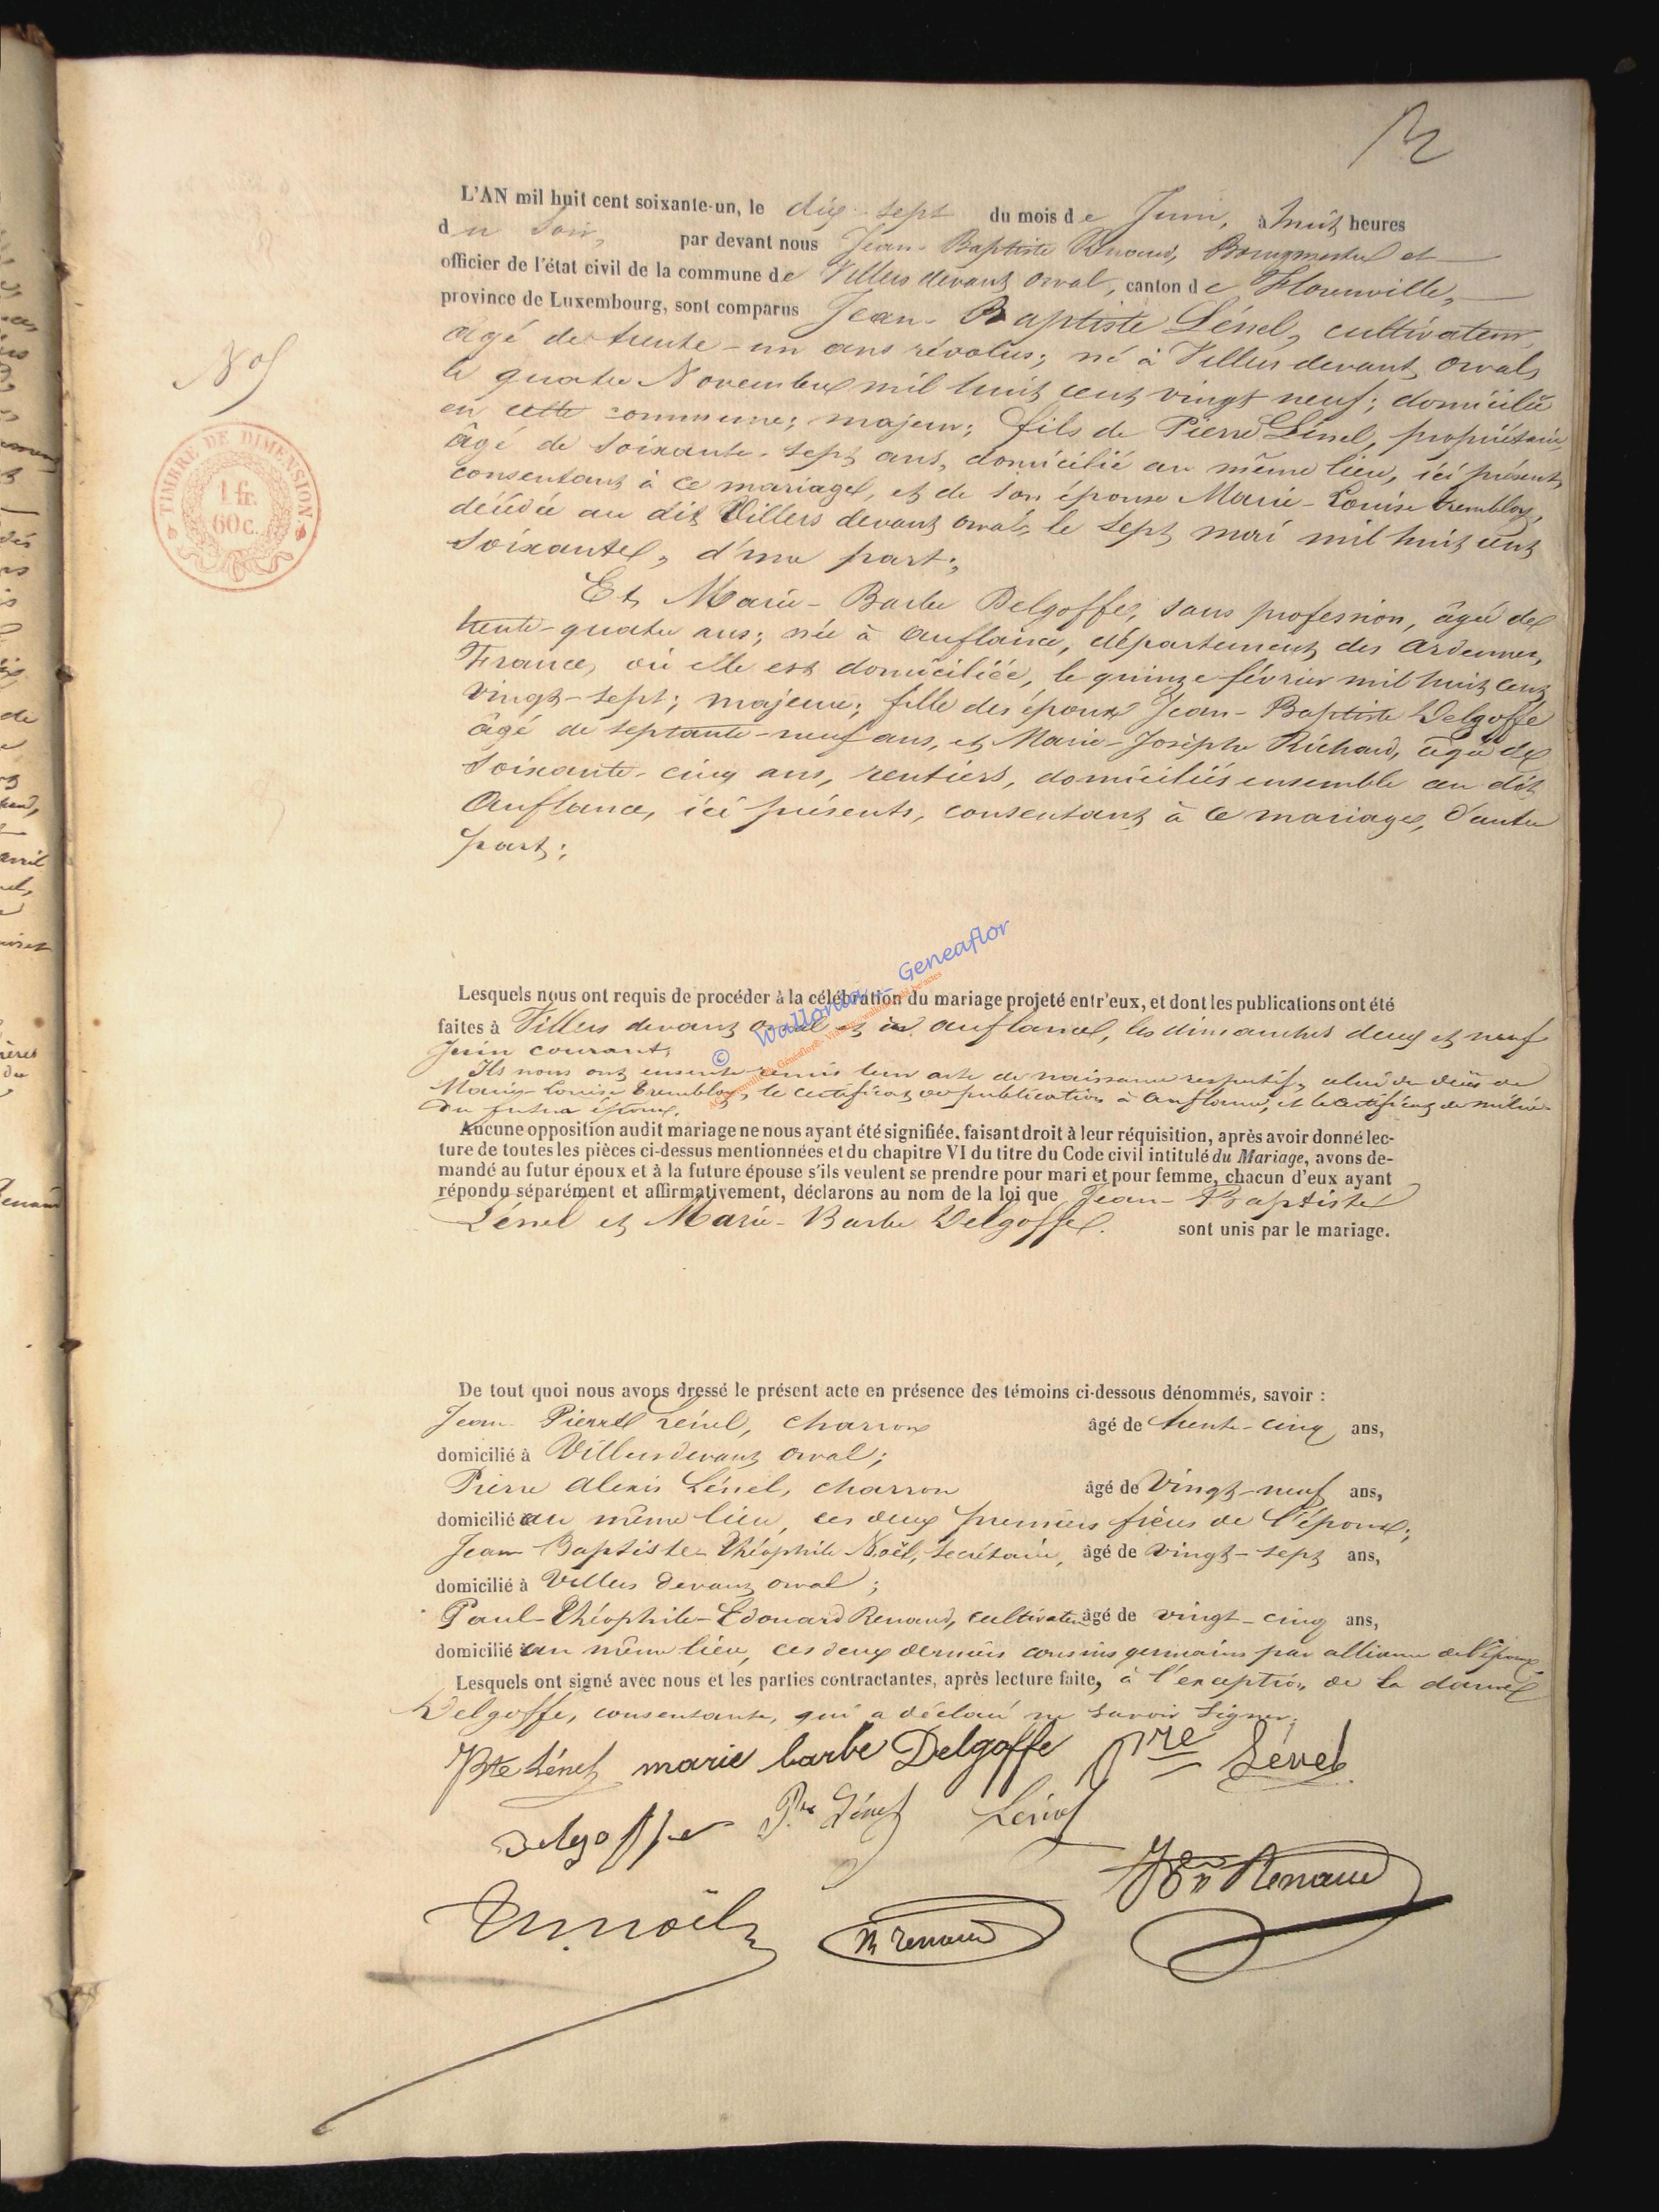 L'AN mil huit cent soixante-un, le dix-sept du mois de Juin, à huit heures
du soir, par devant nous Jean-Baptiste Renaud, Bourgmestre et
officier de l'état civil de la commune de Villers devant orval, canton de Florenville,
province de Luxembourg, sont comparus Jean-Baptiste Lénel, cultivateur
âgé de trente-un ans révolus; né à Villers devant orval,
le quatre Novembre mil huit cent vingt neuf; domicilié
en cette commune; majeur; fils de Pierre Lénel, propriétaire,
âgé de soixante-sept ans, domicilié au même lieu, ici présent,
consentant à ce mariage, et de son épouse Marie-Louise Trembloy,
décédée au dit Villers devant orval, le sept mai mil huit cent
soixante, d'une part;
Et Marie-Barbe Delgoffe, sans profession, âgée de
trente-quatre ans; née à Auflance, département des Ardennes,
France, où elle est domiciliée, le quinze février mil huit cent
vingt-sept; majeure; fille des époux Jean-Baptiste Delgoffe
âgé de septante-neuf ans, et Marie-Josèphe Richard, âgée de
soixante-cinq ans, rentiers, domiciliés ensemble au dit
Auflance, ici présents, consentant à ce mariage, d'autre
part;
N° 5
TIMBRE DE DIMENSION
1 fr.
60 c.
Lesquels nous ont requis de procéder à la célébration du mariage projeté entr'eux, et dont les publications ont été
faites à Villers devant orval et à Auflance, les dimanches deux et neuf
Juin courant;
Ils nous ont ensuite remis leur acte de naissance respectif, celui de décès de
Marie-Louise Trembloy, le certificat de publication à Auflance, et le certificat de milice
du futur époux.
Aucune opposition audit mariage ne nous ayant été signifiée, faisant droit à leur réquisition, après avoir donné lec-
ture de toutes les pièces ci-dessus mentionnées et du chapitre VI du titre du Code civil intitulé du Mariage, avons de-
mandé au futur époux et à la future épouse s'ils veulent se prendre pour mari et pour femme, chacun d'eux ayant
répondu séparément et affirmativement, déclarons au nom de la loi que Jean-Baptiste
Lénel et Marie-Barbe Delgoffe. sont unis par le mariage.
© Wallonia - Geneaflor
De tout quoi nous avons dressé le présent acte en présence des témoins ci-dessous dénommés, savoir :
Jean-Pierre Lénel, charron âgé de trente-cinq ans,
domicilié à Villers devant orval;
Pierre Alexis Lénel, charron âgé de vingt-neuf ans,
domicilié au même lieu, ces deux premiers frères de l'époux;
Jean-Baptiste-Théophile Noël, secrétaire, âgé de vingt-sept ans,
domicilié à Villers devant orval;
Paul-Théophile-Edouard Renaud, cultivateur âgé de vingt-cinq ans,
domicilié au même lieu, ces deux derniers cousins germains par alliance de l'époux
Lesquels ont signé avec nous et les parties contractantes, après lecture faite, à l'exception de la dame
Delgoffe, consentante, qui a déclaré ne savoir signer.
JBte Lénel marie barbe Delgoffe Pre Lénel
Delgoffe Pre Lénel Lénel
JBte Renaud
Th. Noël Th renaud